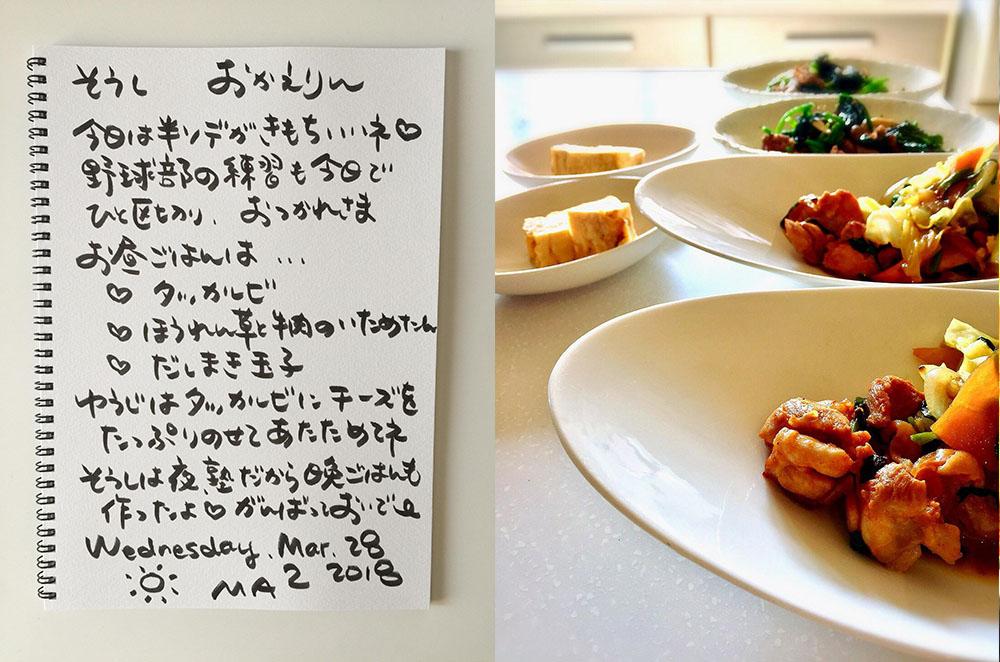 そうし　おかえりん
今日は半ソデがきもちいいネ♡
野球部の練習も今日で
ひと区切り、おつかれさま
お昼ごはんは…
♡ タッカルビ
♡ ほうれん草と牛肉のいためたん
♡ だしまき玉子
ゆうじはタッカルビにチーズを
たっぷりのせてあたためてネ
そうしは夜、塾だから晩ごはんも
作ったよ♡がんばっておいでـ
Wednesday, Mar. 28
MA2 2018